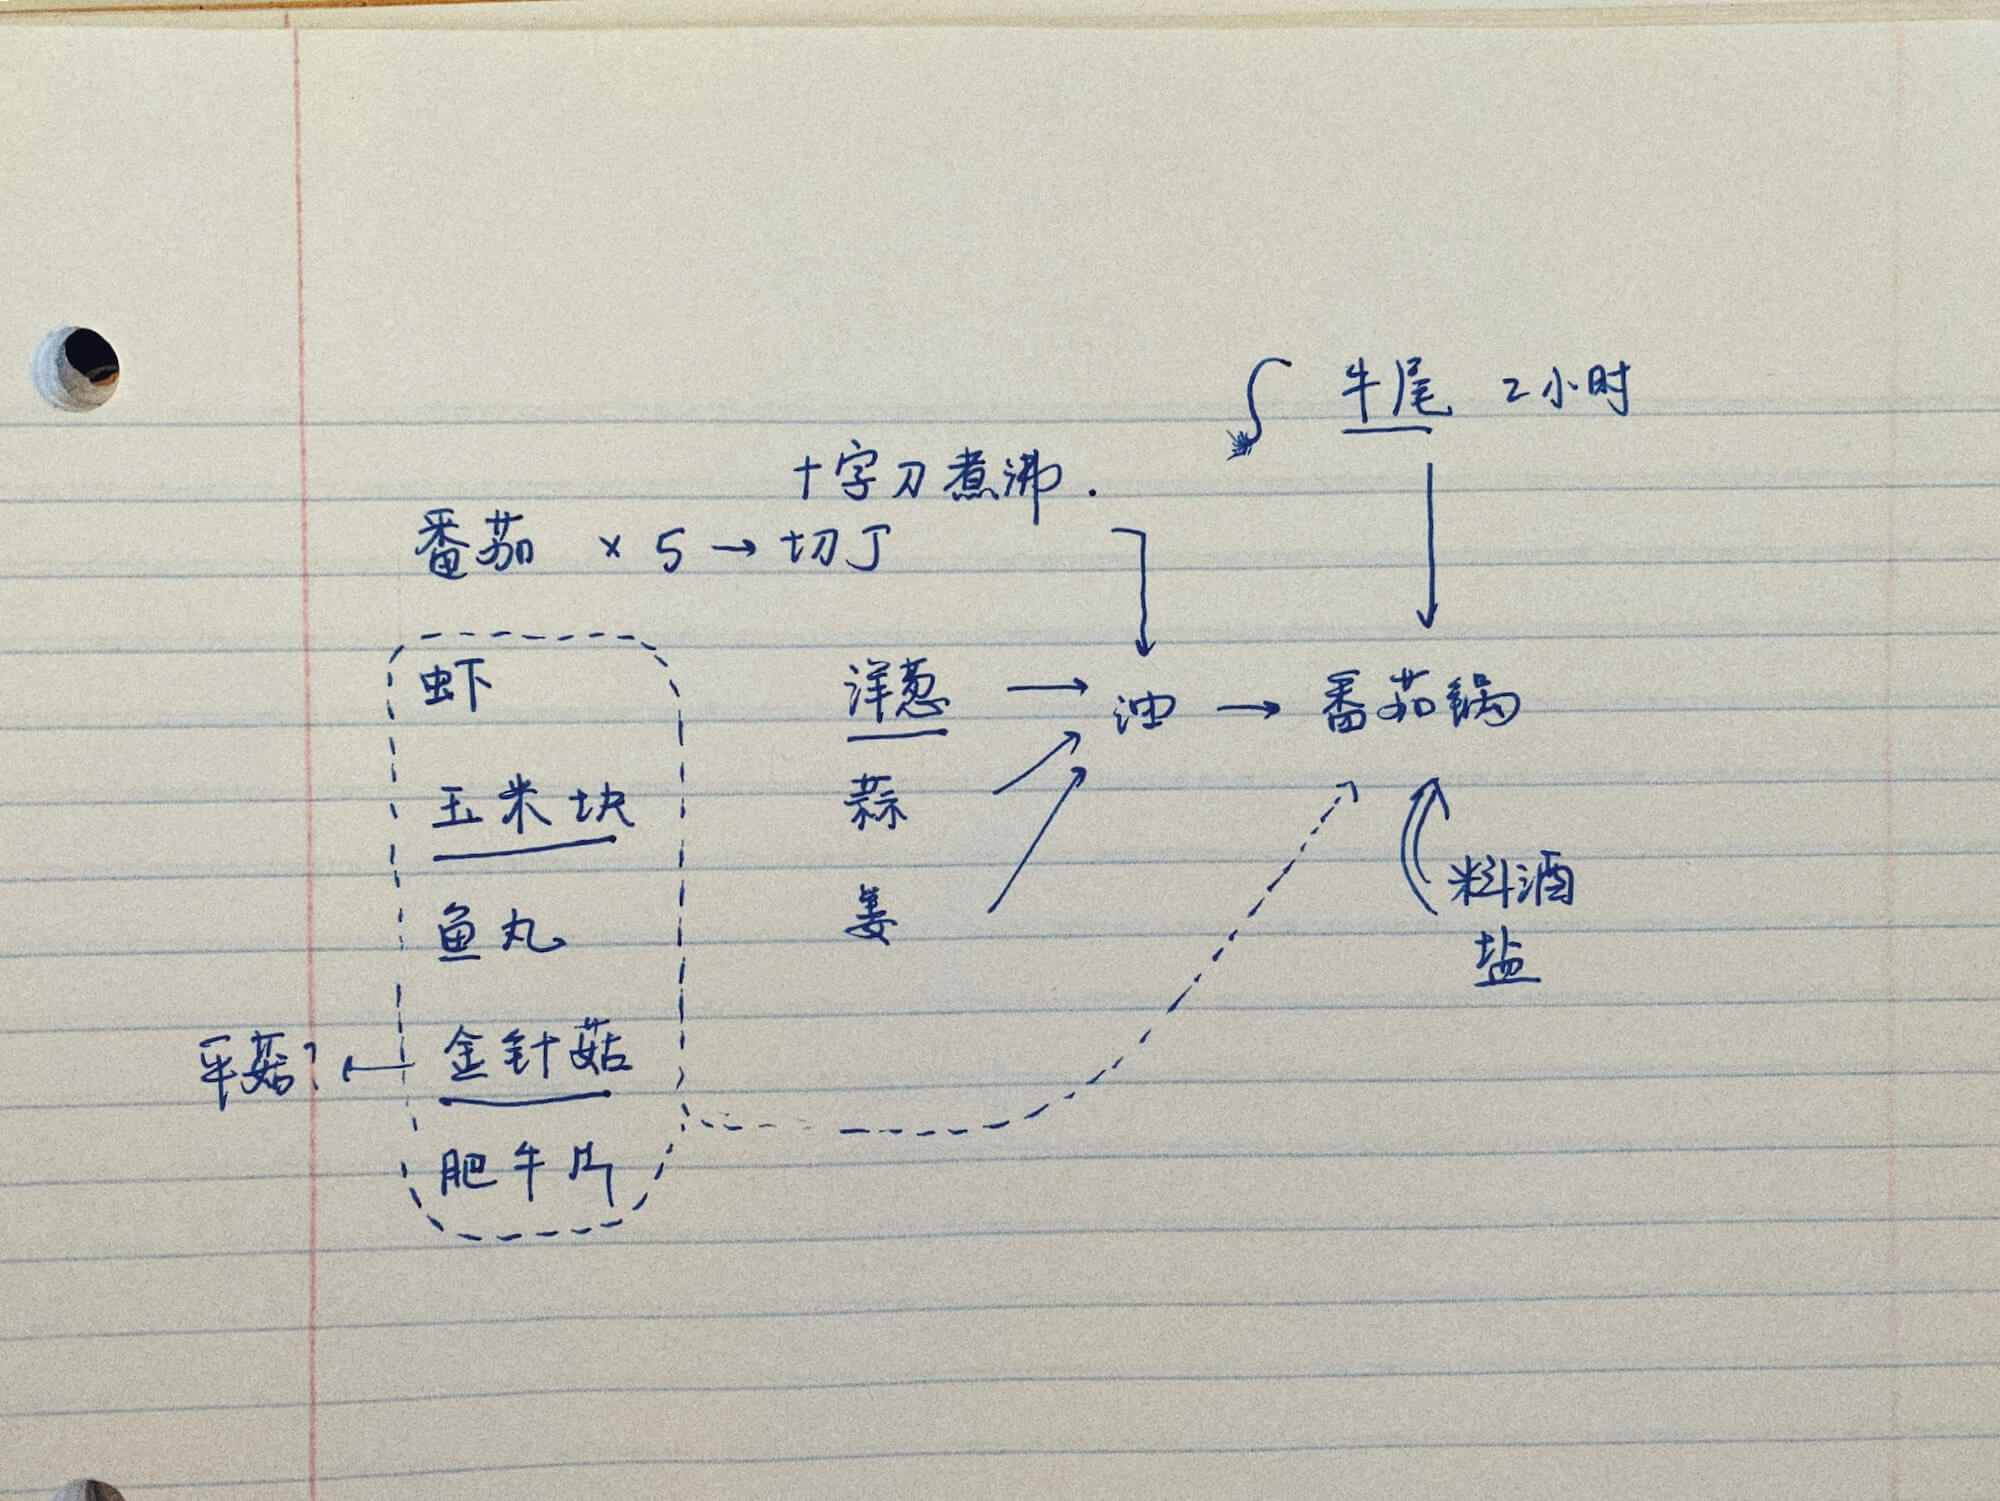 牛尾 2小时
十字刀煮沸.
番茄 × 5 → 切丁
虾
玉米块
鱼丸
金针菇
平菇?
肥牛片
洋葱
蒜
姜
油 → 番茄锅
料酒
盐